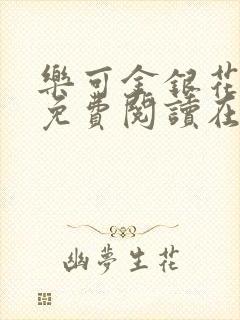 樂可金銀花
免費閱讀在
幽夢生花